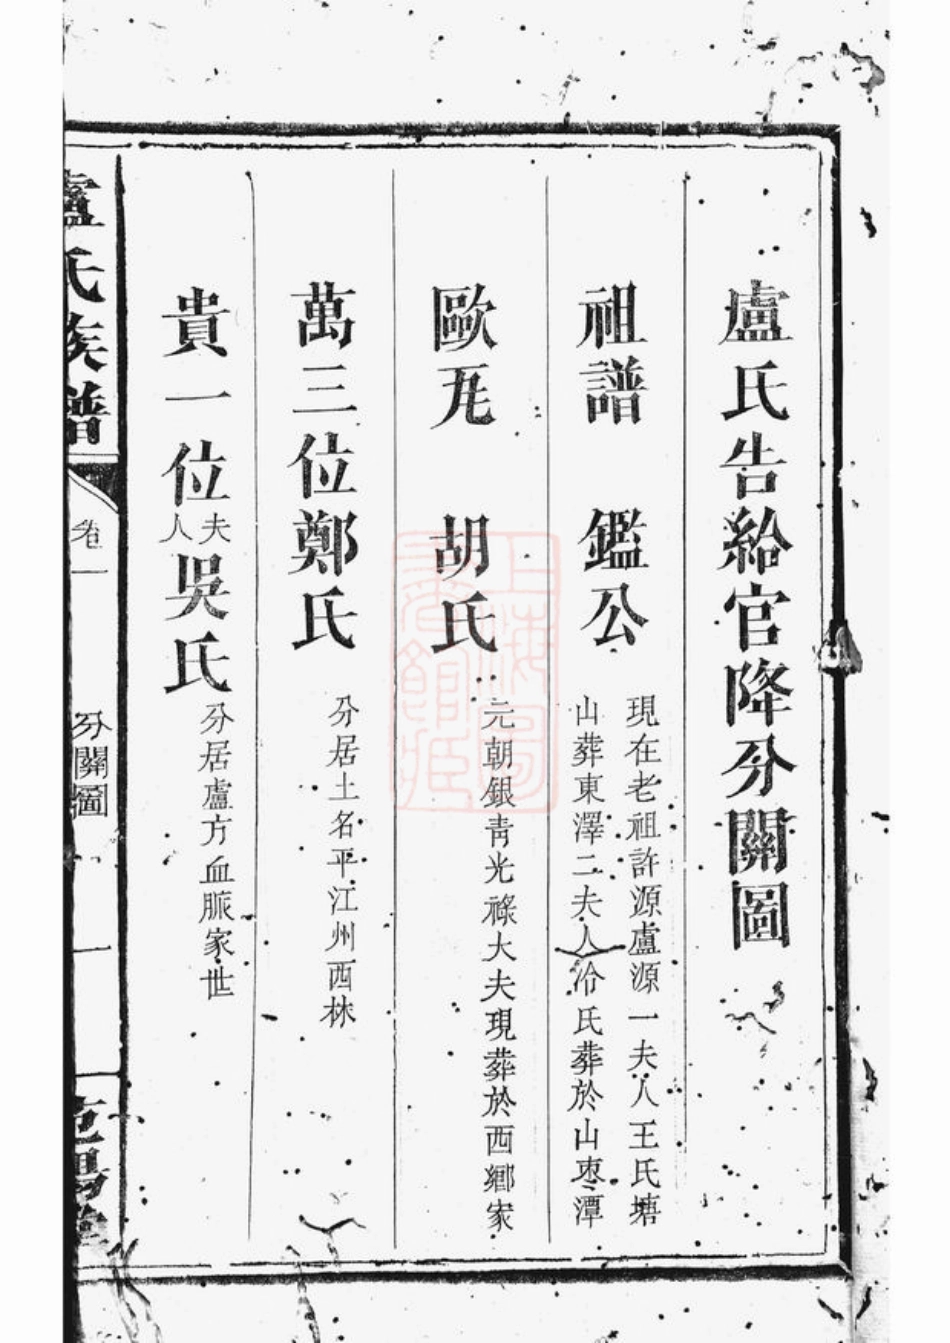 盧氏告給官降分關圖
祖譜 鑑公
現在老祖許源盧源一夫人王氏塘
山葬東澤二夫人冷氏葬於山枣潭
歐旡 胡氏
元朝銀靑光祿大夫現葬於西鄉家
萬三位鄭氏
分居土名平江州西林
貴一位夫人吳氏
分居盧方血脈家世
盧氏族譜
卷一
分關圖
一
范陽堂
上海圖書館藏